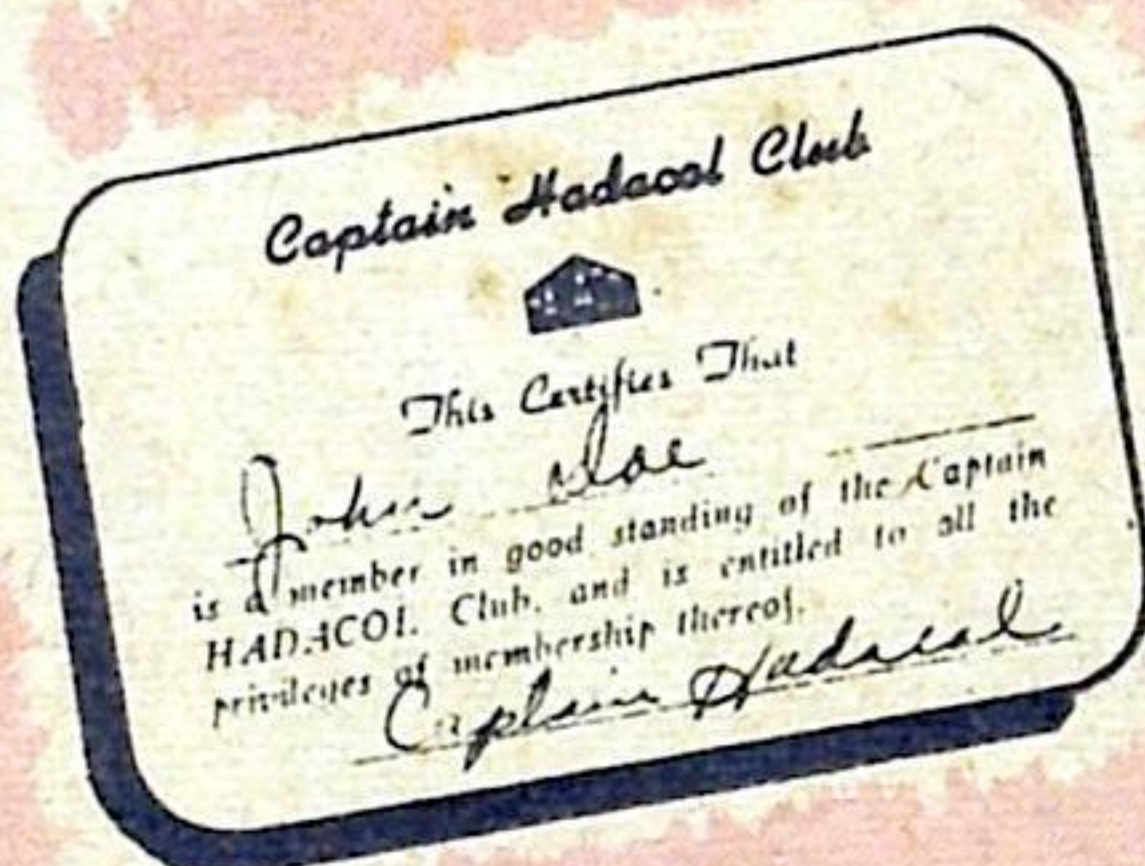 Captain Hadacol Club
This Certifies That
John Doe
is a member in good standing of the Captain
HADACOL Club, and is entitled to all the
privileges of membership thereof.
Captain Hadacol